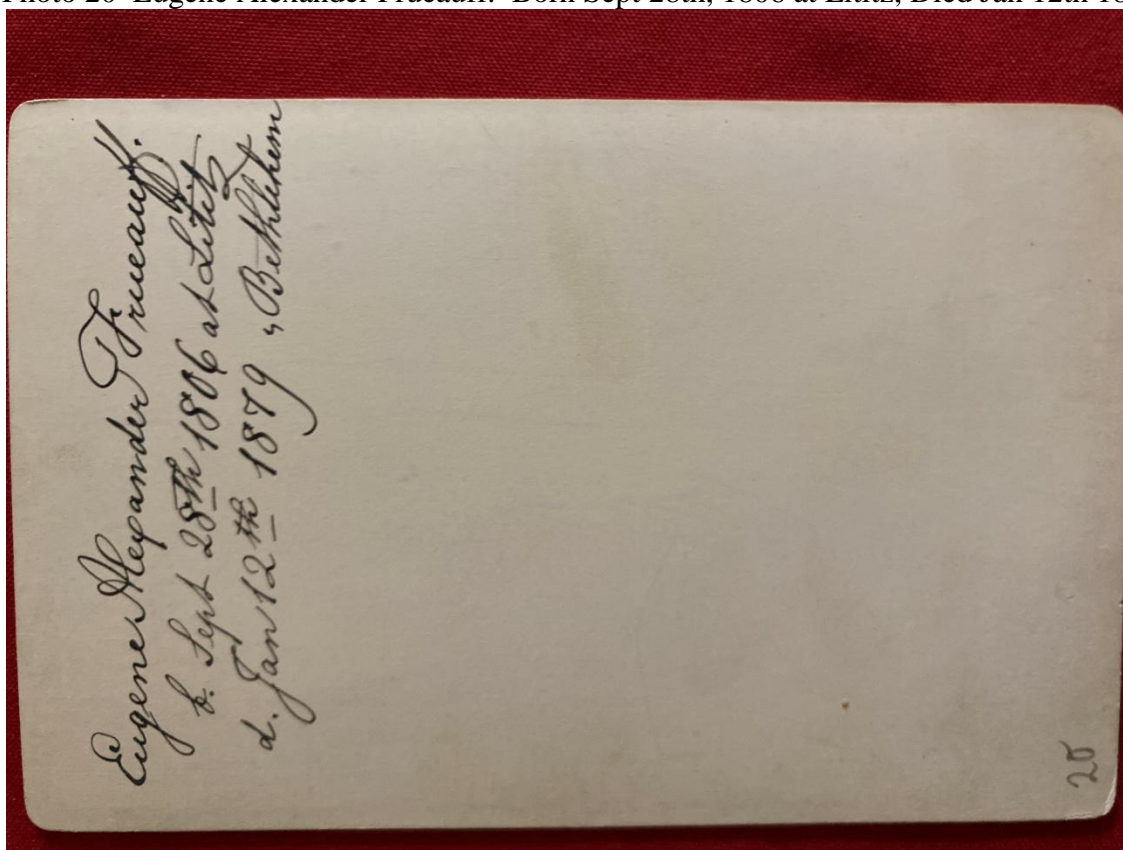 Photo 20 Eugene Alexander Frueauff. Born Sept 28th, 1806 at Lititz, Died Jan 12th 18
Eugene Alexander Frueauff.
b. Sept 28th 1806 at Lititz
d. Jan 12th 1879 „ Bethlehem
20